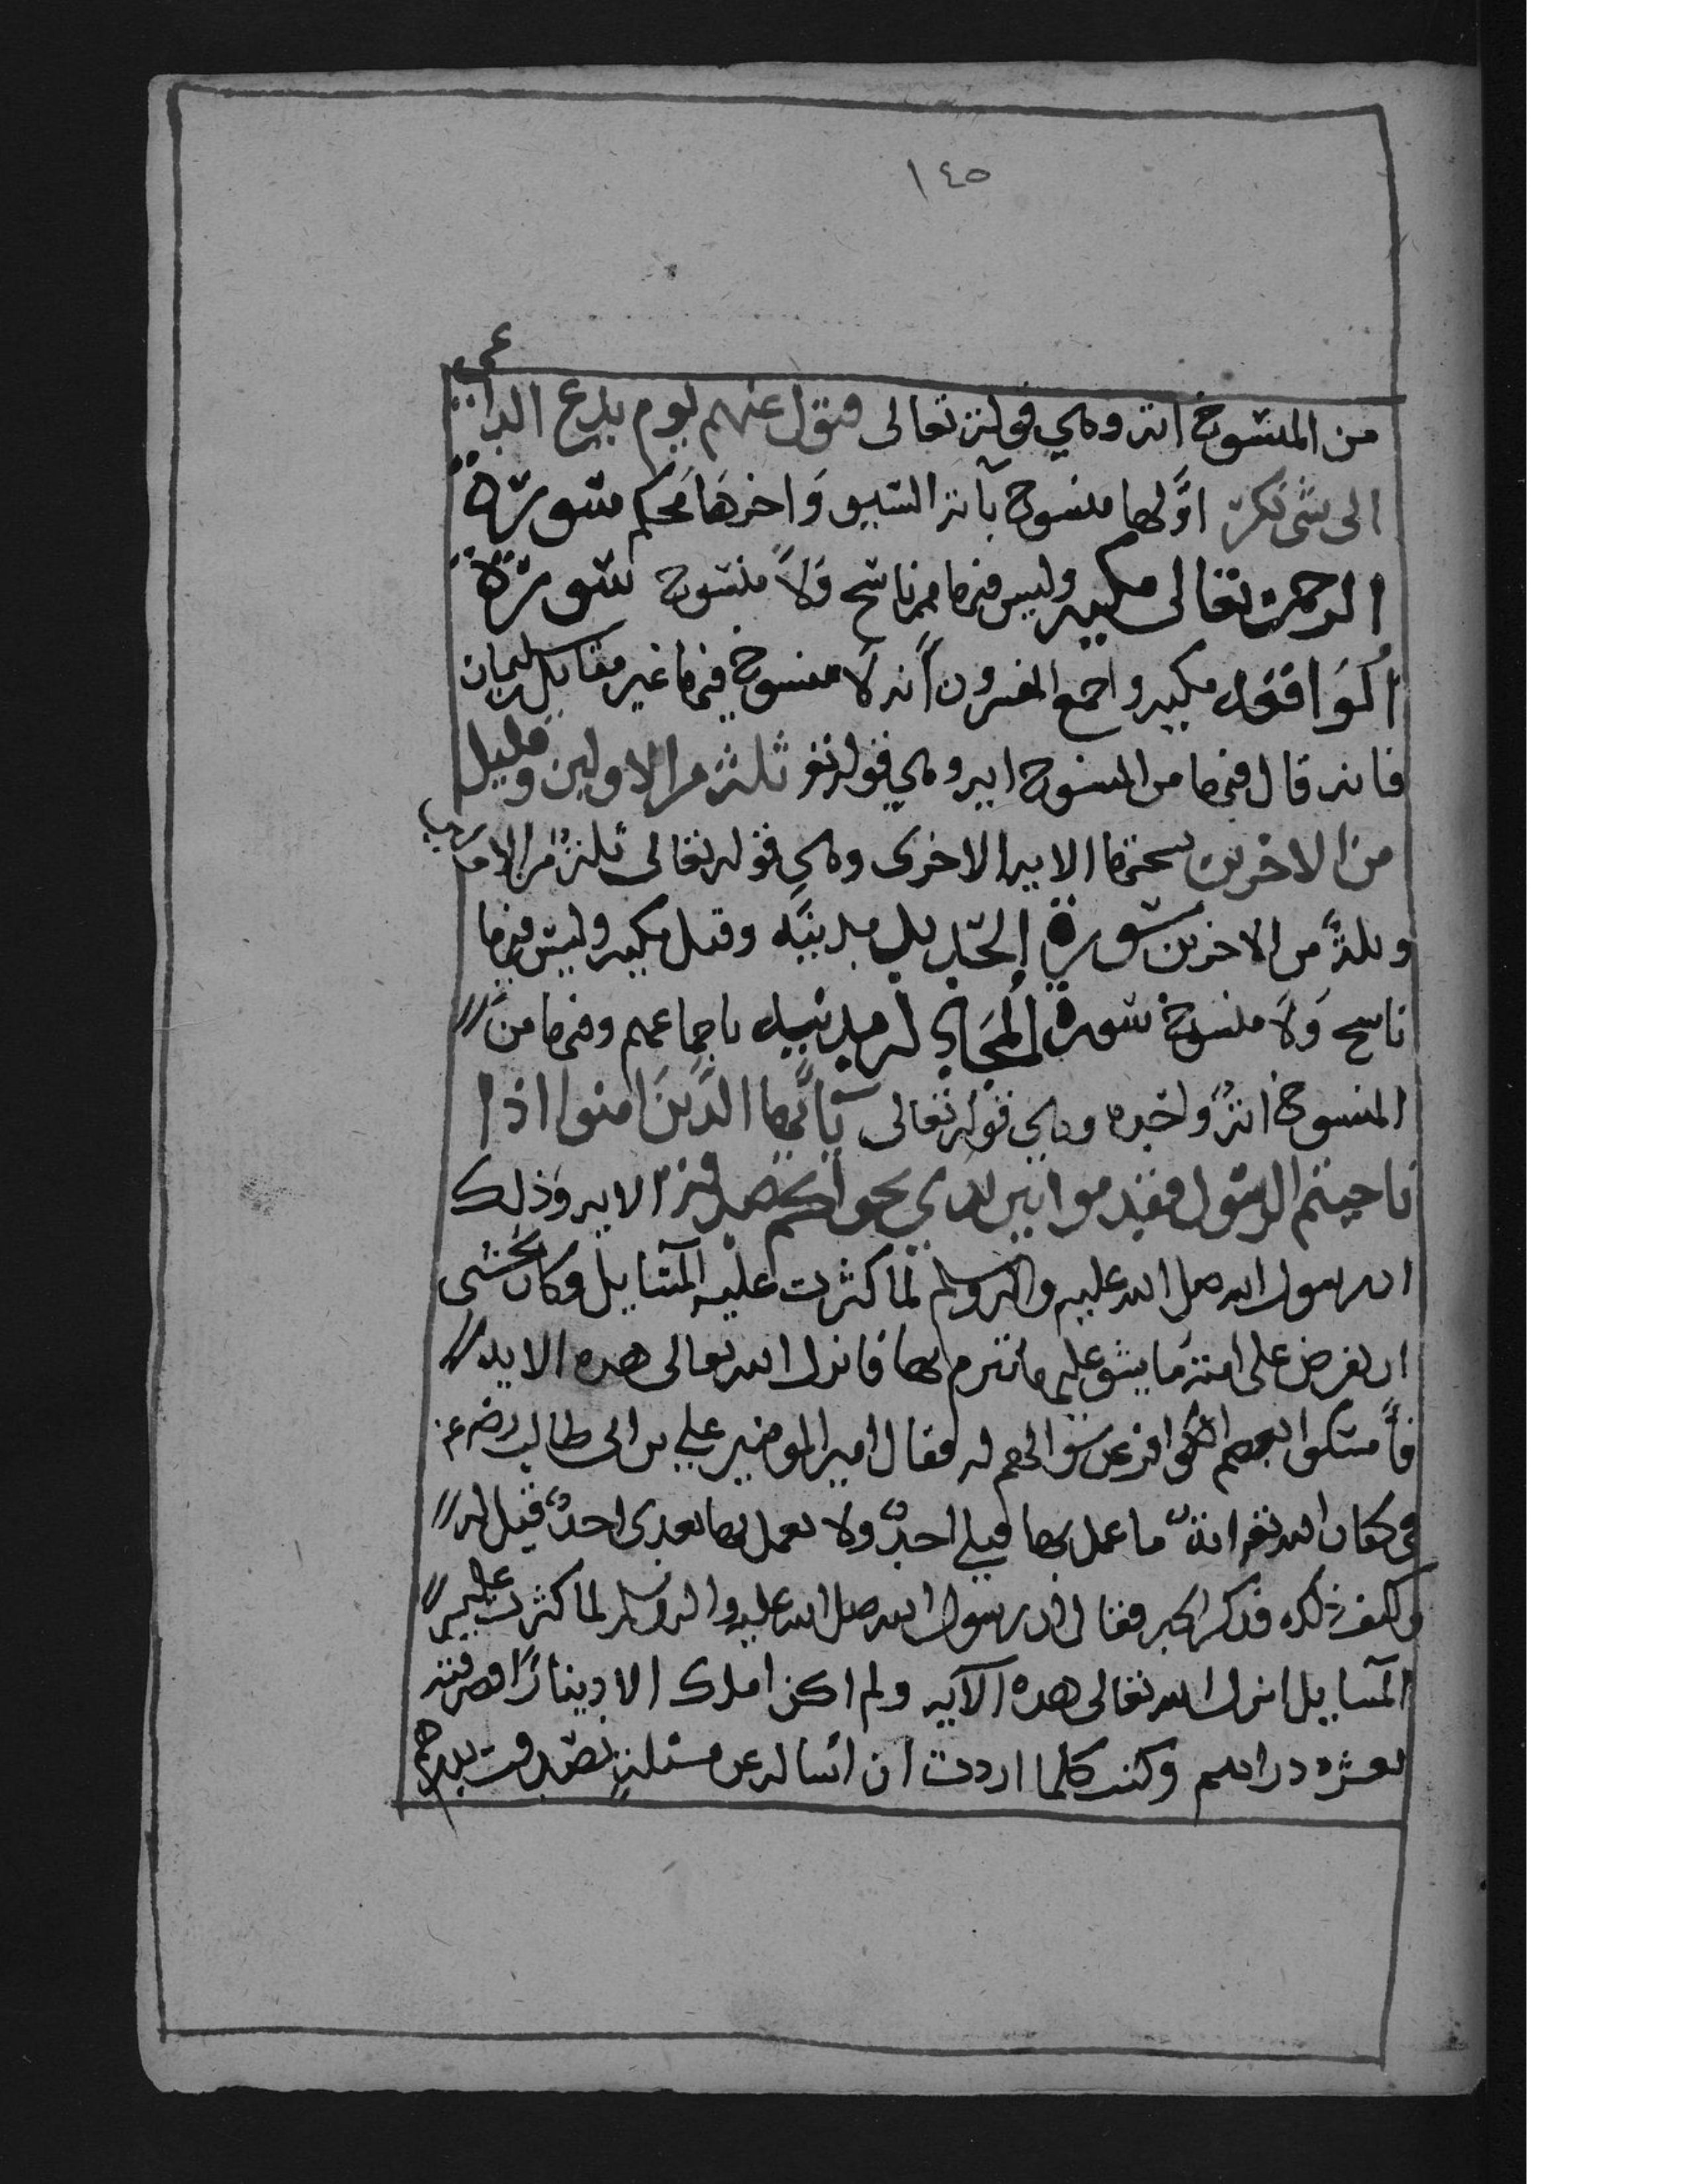 ١٤٥
من المنسوخ اية وهي قوله تعالى فتول عنهم يوم يدع الداعي
الى شي نكر اولها منسوخ بآية السيف واخرها محكم سورة
الرحمن تعالى مكيه وليس فيها ناسخ ولا منسوخ سورة
الواقعه مكيه واجمع المفسرون انه لا منسوخ فيها غير مقاتل بن سليمان
فانه قال فيها من المنسوخ ايه وهي قوله تع ثلة من الاولين وقليل
من الاخرين نسختها الايه الاخرى وهي قوله تعالى ثلة من الاولين
وثلة من الاخرين سورة الحديد مدنيه وقيل مكيه وليس فيها
ناسخ ولا منسوخ سورة المجادله مدنيه باجماعهم وفيها من
المنسوخ اية واحده وهي قوله تعالى يآيها الذين امنوا اذا
ناجيتم الرسول فقدموا بين يدي نجواكم صدقة الايه وذلك
ان رسول الله صلى الله عليه واله وسلم لما كثرت عليه المسايل وكان يخشى
ان يفرض على امته ما يشق عليهم فانزل الله تعالى هذه الايه
فامسكوا عن سوالهم له فقال امير المومنين علي بن ابي طالب
في كتاب الله تع اية ما عمل بها قبلي احد ولا يعمل بها بعدي احد قيل له
وكيف ذلك فذكر الخبر فقال ان رسول الله صلى الله عليه واله وسلم لما كثرت عليه
المسايل انزل الله تعالى هذه الآيه ولم اكن املك الا دينارا فصرفته
بعشره دراهم وكنت كلما اردت ان اساله عن مسئلة تصدقت بدرهم